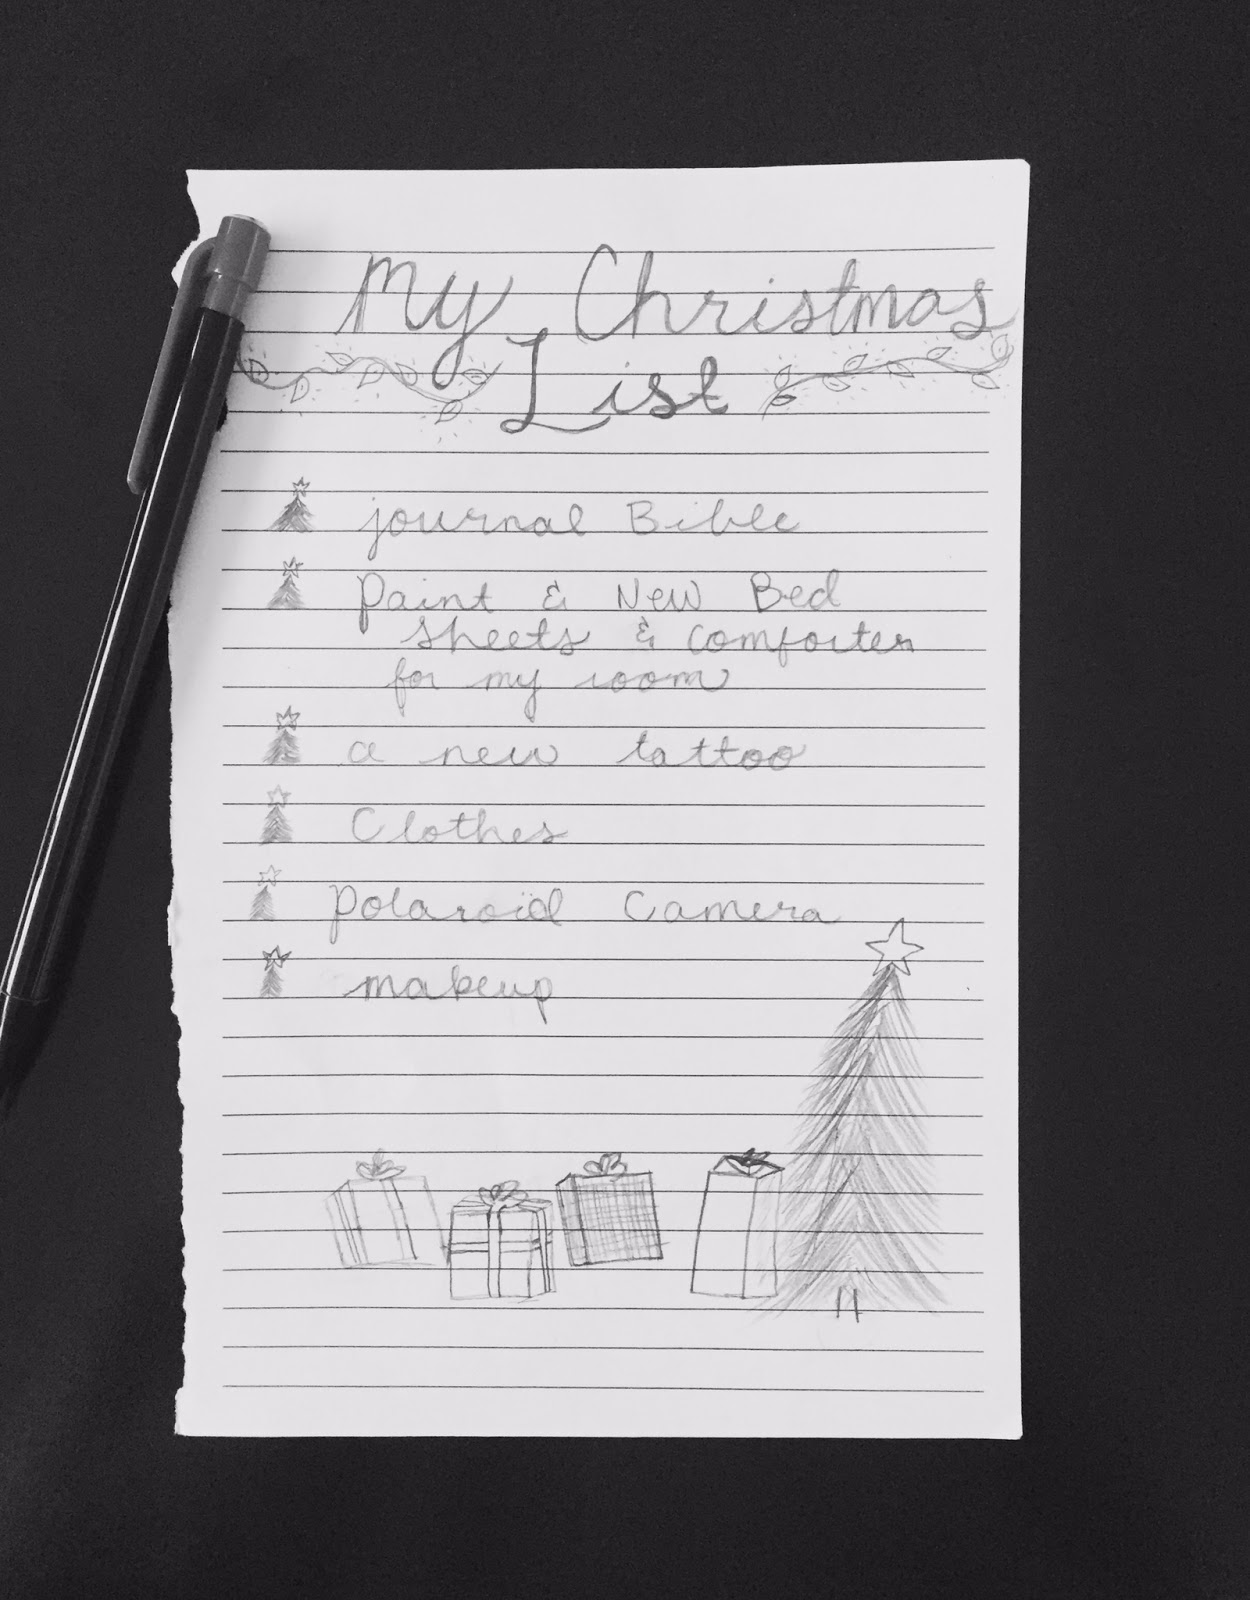 My Christmas
List
journal Bible
Paint & New Bed
sheets & comforter
for my room
a new tattoo
Clothes
Polaroid Camera
makeup